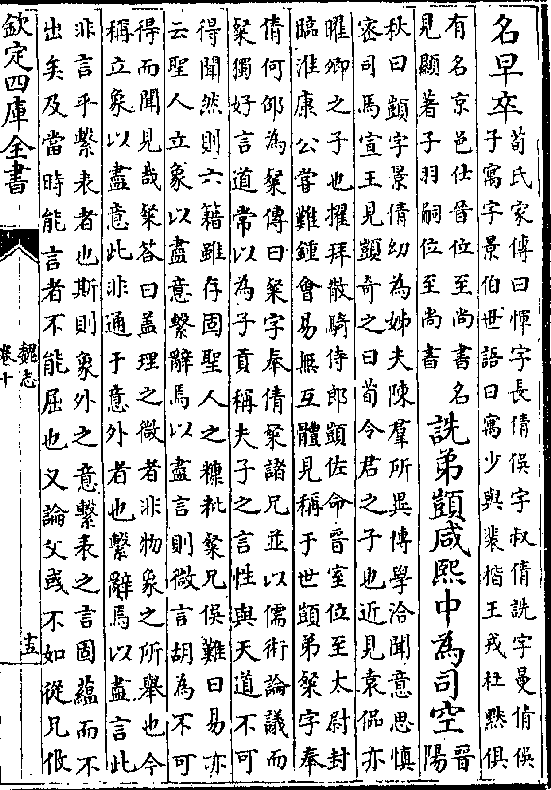 名早卒荀氏家傳曰惲字長倩俁字叔倩詵字曼倩俁
子㝢字景伯世語曰㝢少與裴楷王戎杜黙俱
有名京邑仕晉位至尚書名
見顯著子羽嗣位至尚書
詵弟顗咸熙中為司空晉
陽
秋曰顗字景倩幼為姊夫陳羣所異博學洽聞意思慎
宻司馬宣王見顗竒之曰荀令君之子也近見袁侃亦
曜卿之子也擢拜散騎侍郎顗佐命晉室位至太尉封
臨淮康公嘗難鍾會易無互體見稱于世顗弟粲字奉
倩何邵為粲傳曰粲字奉倩粲諸兄並以儒術論議而
粲獨好言道常以為子貢稱夫子之言性與天道不可
得聞然則六籍雖存固聖人之糠粃粲兄俁難曰易亦
云聖人立象以盡意繫辭焉以盡言則微言胡為不可
得而聞見哉粲答曰盖理之微者非物象之所舉也今
稱立象以盡意此非通于意外者也繫辭焉以盡言此
非言乎繫表者也斯則象外之意繫表之言固藴而不
出矣及當時能言者不能屈也又論父彧不如從兄攸
欽定四庫全書
魏志
卷十
十五